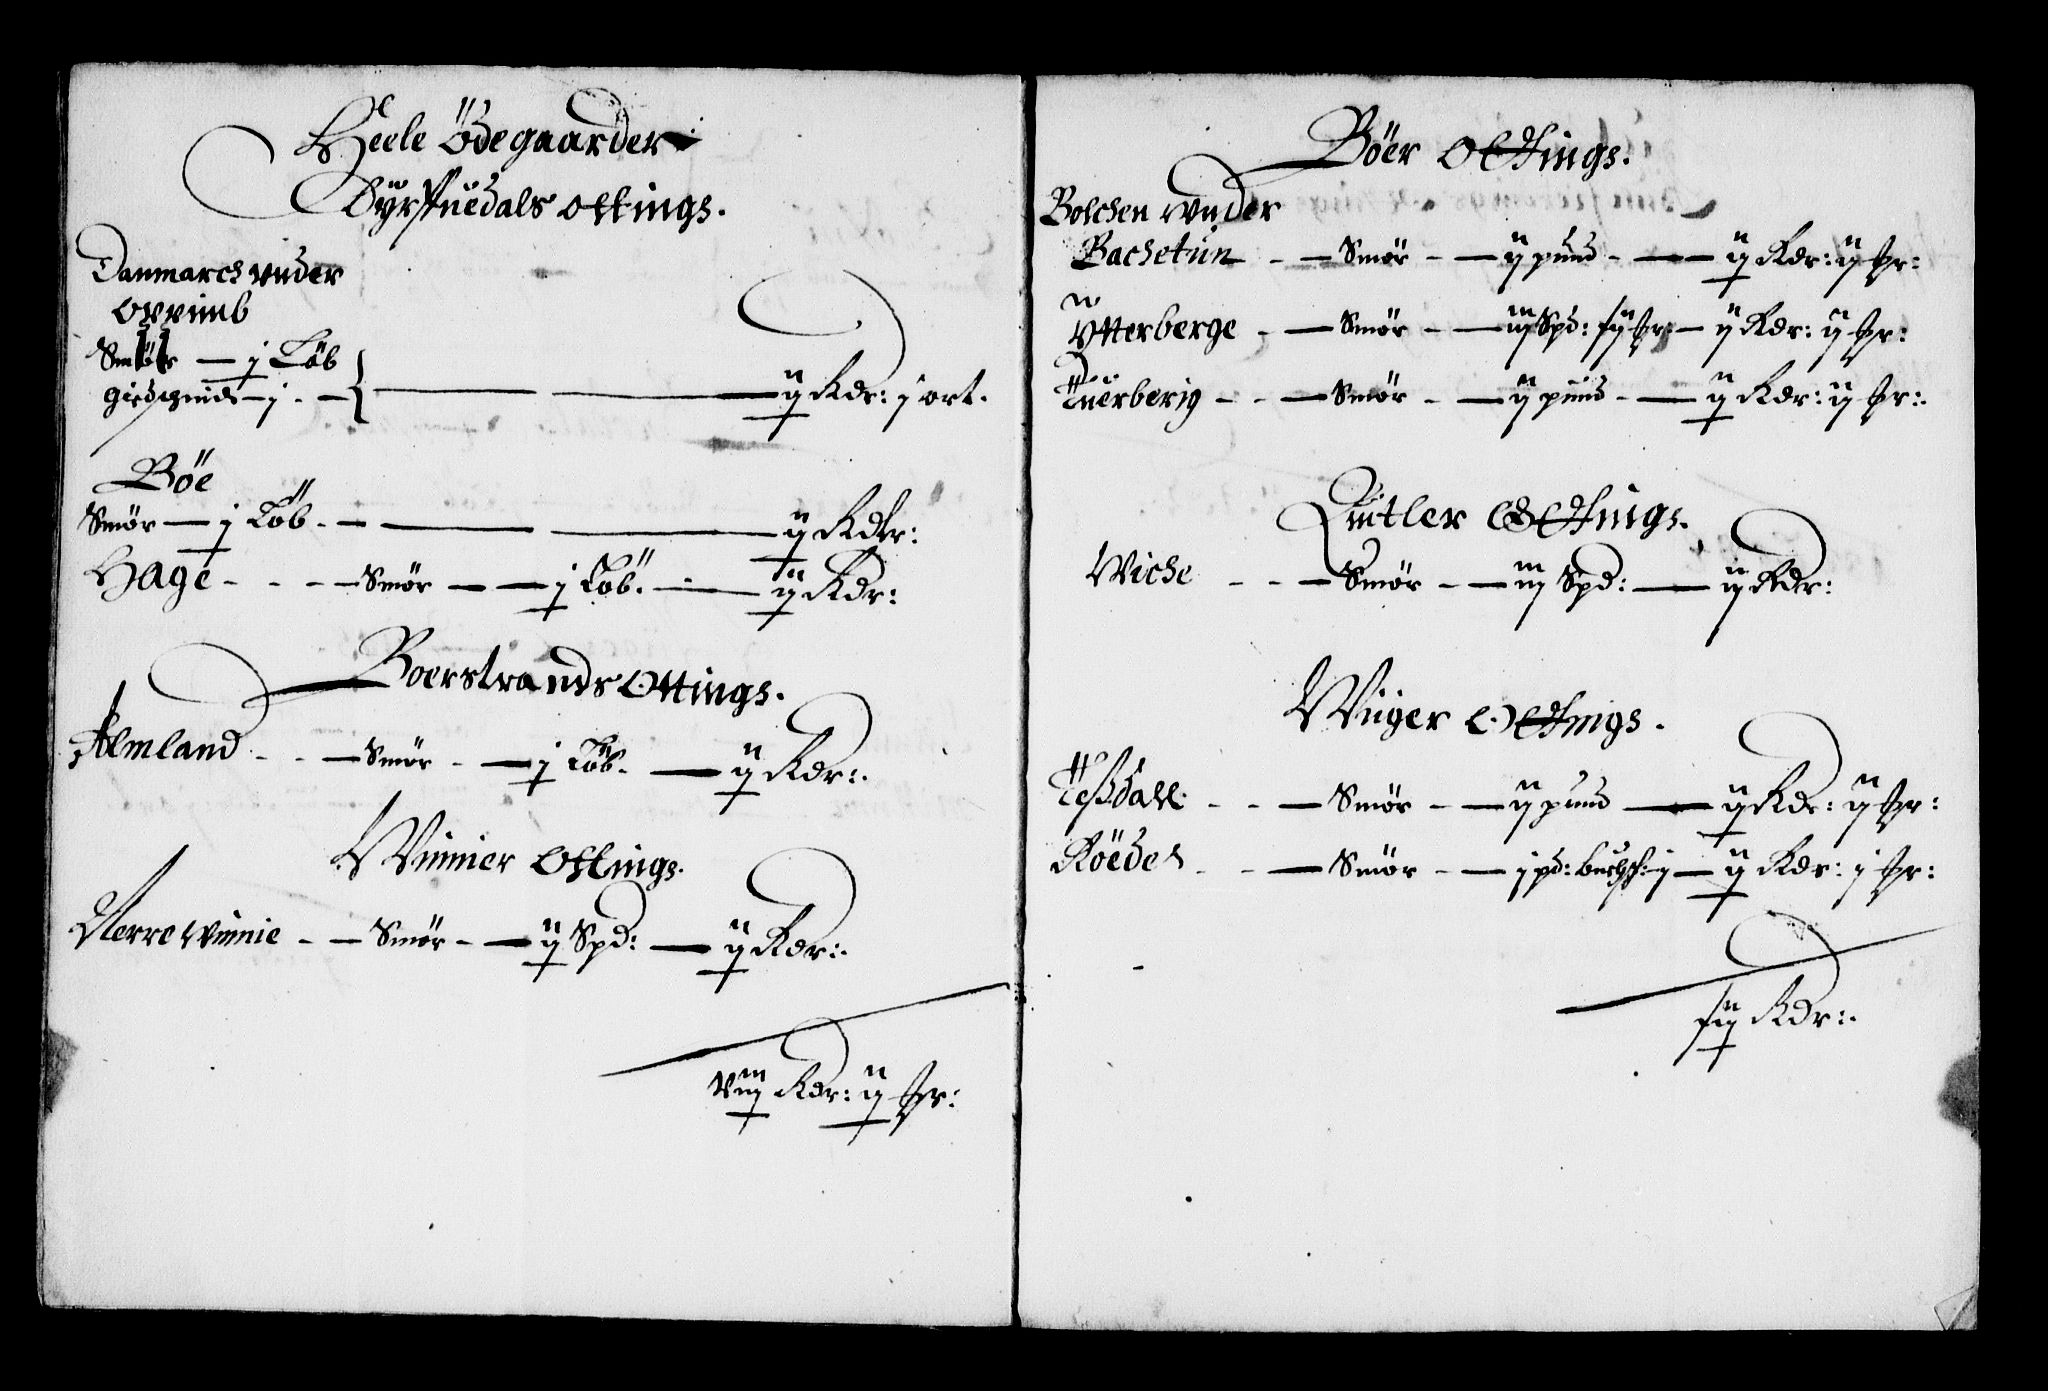 Heele Ödegaarder
Dyrsuedals Ottings.
Danmarch vnder
Opvimb
Smör — j Löb
giedschind — j. — ij Rdr: j ort.
Böe
Smör — j Löb. — ij Rdlr:
Hage - - - Smör — j Löb. — ij Rdr:
Boerstrands Ottings.
Almland - - Smör - j Löb. — ij Rdr:
Winnier Ottings.
Nerre Winnie - - Smör - ij Spd: — ij Rdr:
viij Rdr: ij
Böer Ottings.
Bolchen vnder
Bachetun - - Smör - ij pund - ij Rdr: ij
Ytterberge - Smör - iij Spd: — ij Rdr: ij
Tuerberig - - Smör - ij pund - ij Rdr: ij
Quitler Ottings.
Wiche - - Smör - iij Spd: — ij Rdr:
Wiiger Ottings.
Teßdall - - Smör - ij pund — ij Rdr: ij
Röedes - - Smör - j pd: buchsk: j — ij Rdr: j
Rdr: